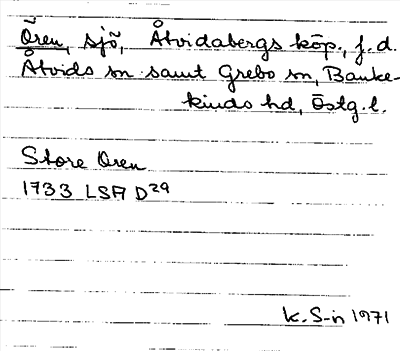 Ören, sjö, Åtvidabergs köp., f.d.
Åtvids sn samt Grebo sn, Banke-
kinds hd, Östg. l.
Store Oren
1733 LSA D29
K. S-n 1971